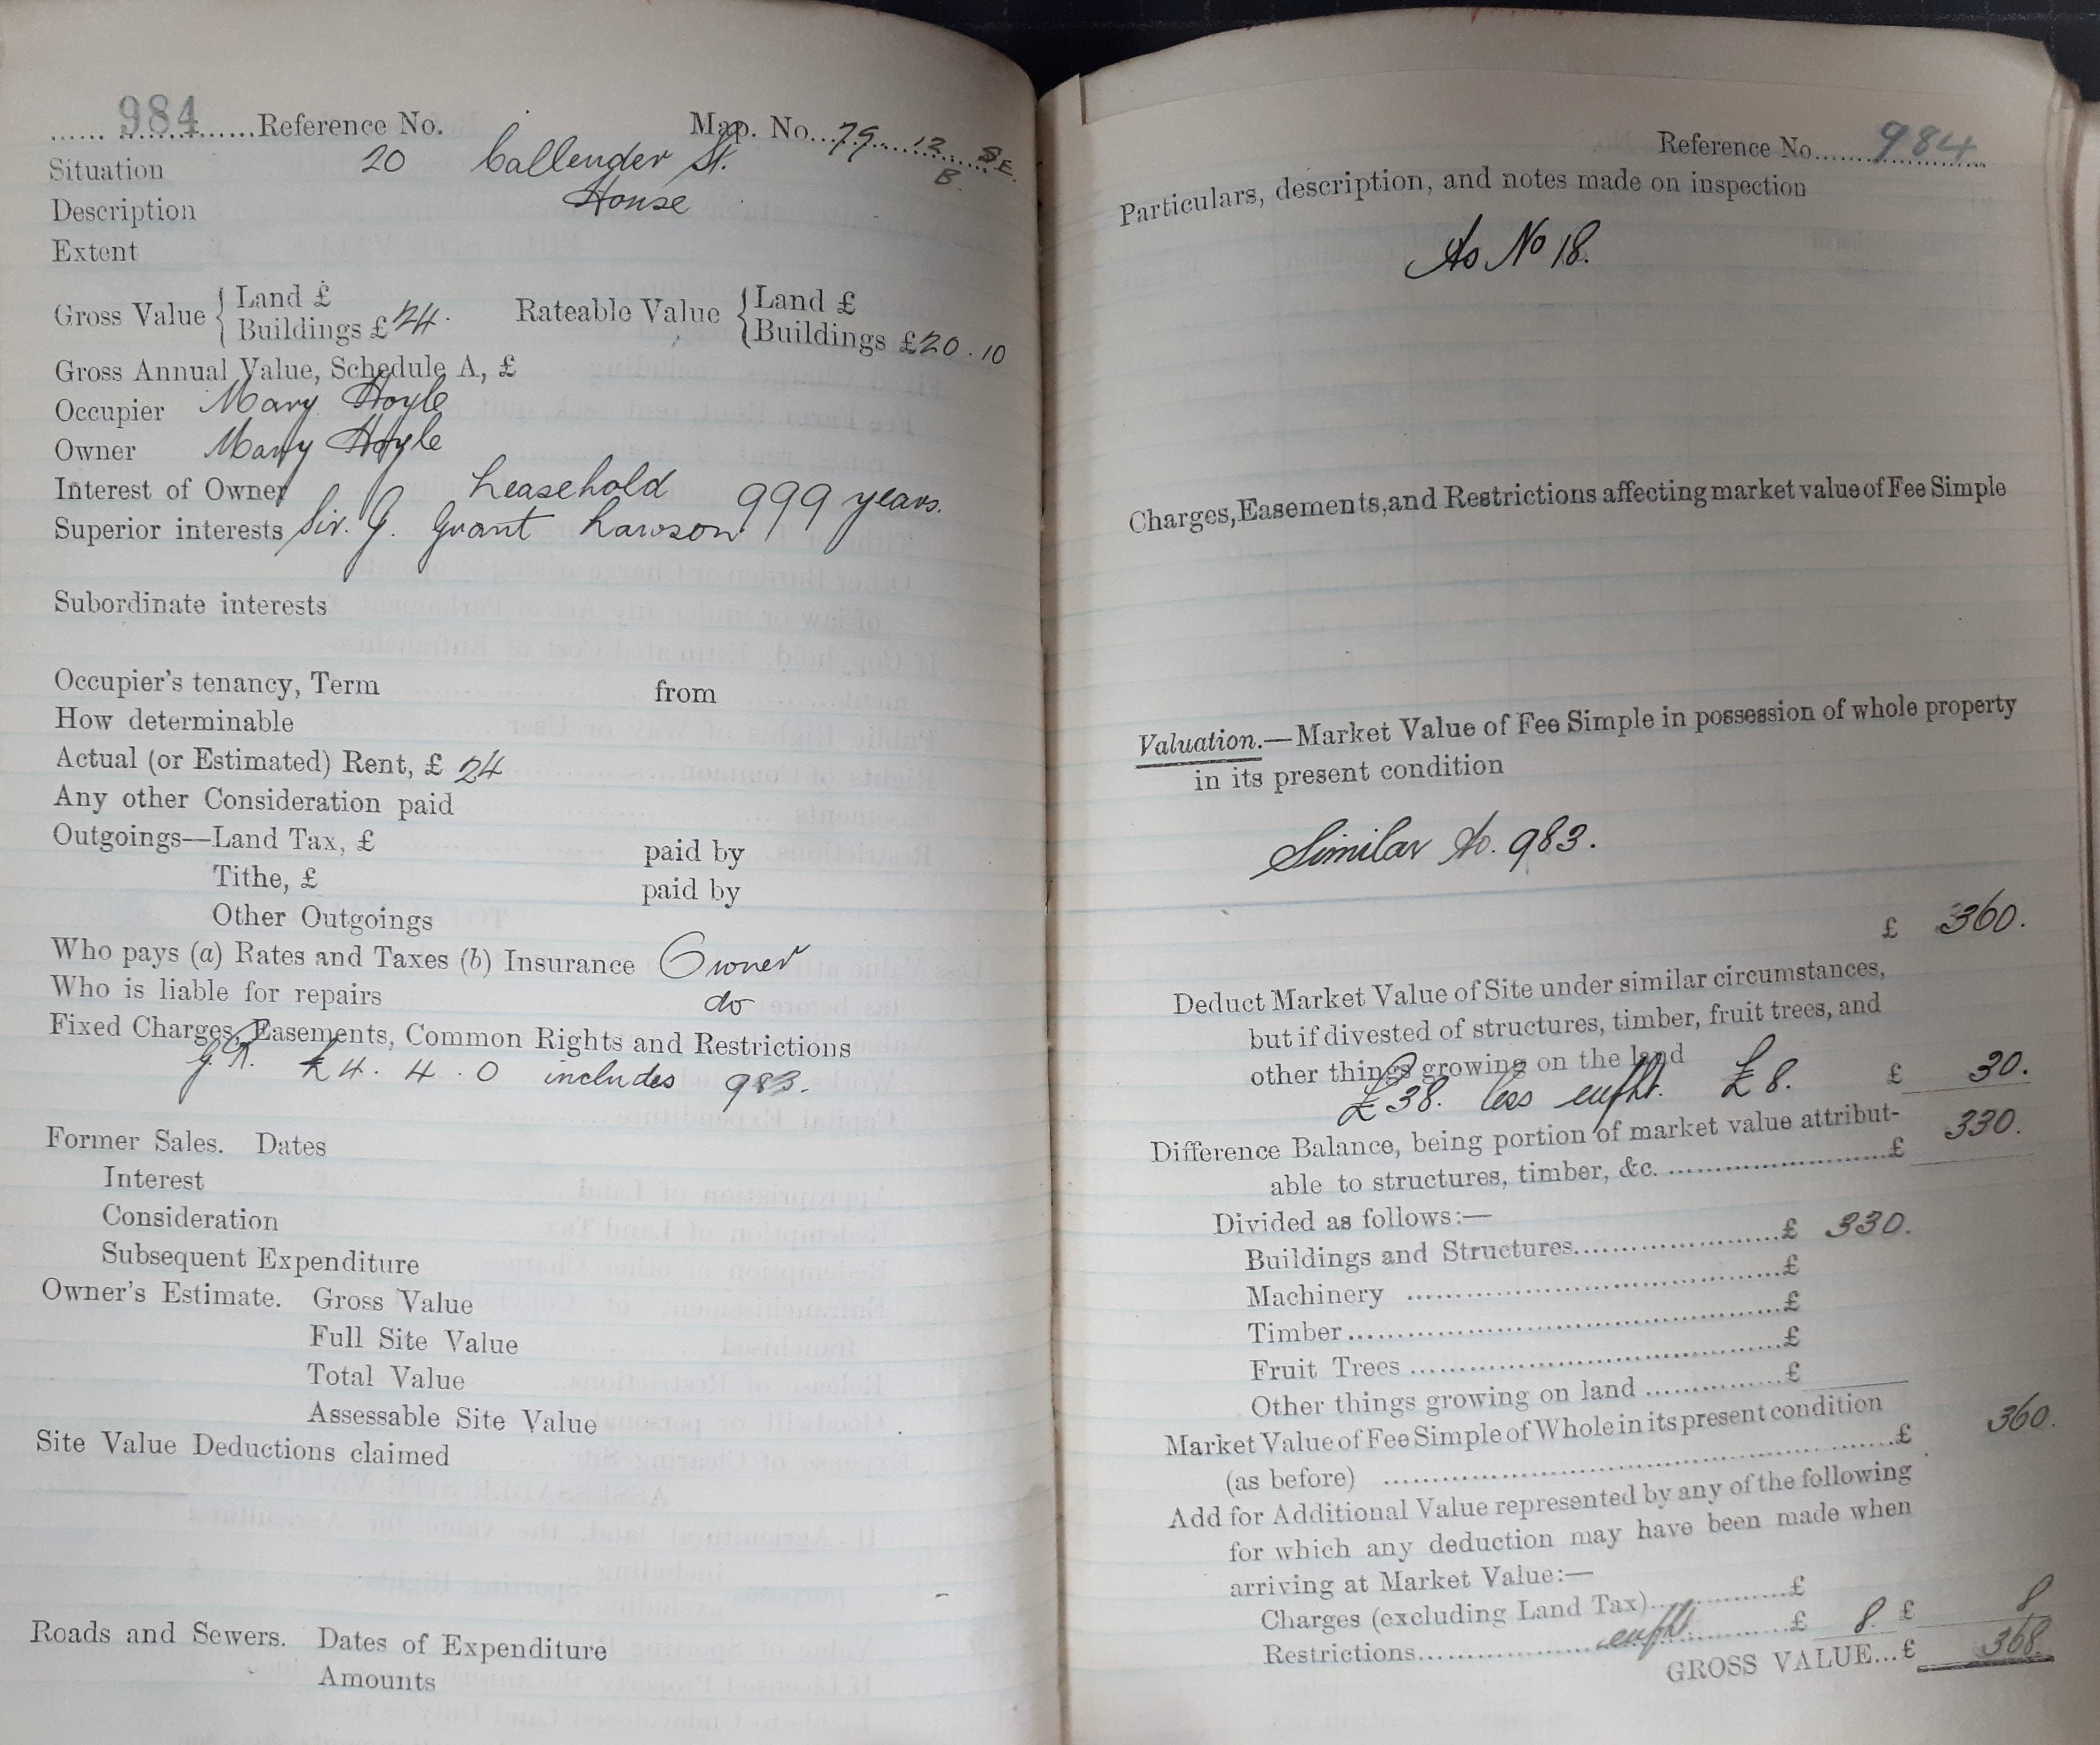 984 Reference No. Map. No. 79 12 S.E.
B.
Situation 20 Callender St.
Description House
Extent
Gross Value { Land £
Buildings £ 24. Rateable Value { Land £
Buildings £ 20.10
Gross Annual Value, Schedule A, £
Occupier Mary Hoyle
Owner Mary Hoyle
Interest of Owner Leasehold 999 years.
Superior interests Sir. G. Grant Lawson
Subordinate interests
Occupier's tenancy, Term from
How determinable
Actual (or Estimated) Rent, £ 24
Any other Consideration paid
Outgoings—Land Tax, £ paid by
Tithe, £ paid by
Other Outgoings
Who pays (a) Rates and Taxes (b) Insurance Owner
Who is liable for repairs do
Fixed Charges, Easements, Common Rights and Restrictions
G.R. £4. 4. 0 includes 983.
Former Sales. Dates
Interest
Consideration
Subsequent Expenditure
Owner's Estimate. Gross Value
Full Site Value
Total Value
Assessable Site Value
Site Value Deductions claimed
Roads and Sewers. Dates of Expenditure
Amounts
Reference No. 984
Particulars, description, and notes made on inspection
As No 18.
Charges, Easements, and Restrictions affecting market value of Fee Simple
Valuation.—Market Value of Fee Simple in possession of whole property
in its present condition
Similar to. 983.
£ 360.
Deduct Market Value of Site under similar circumstances,
but if divested of structures, timber, fruit trees, and
other things growing on the land
£38. less £8. £ 30.
Difference Balance, being portion of market value attribut-
able to structures, timber, &c. £ 330.
Divided as follows:—
Buildings and Structures £ 330.
Machinery £
Timber £
Fruit Trees £
Other things growing on land £
Market Value of Fee Simple of Whole in its present condition
(as before) £ 360.
Add for Additional Value represented by any of the following
for which any deduction may have been made when
arriving at Market Value:—
Charges (excluding Land Tax) £
Restrictions £ 8. £ 8
GROSS VALUE...£ 368.